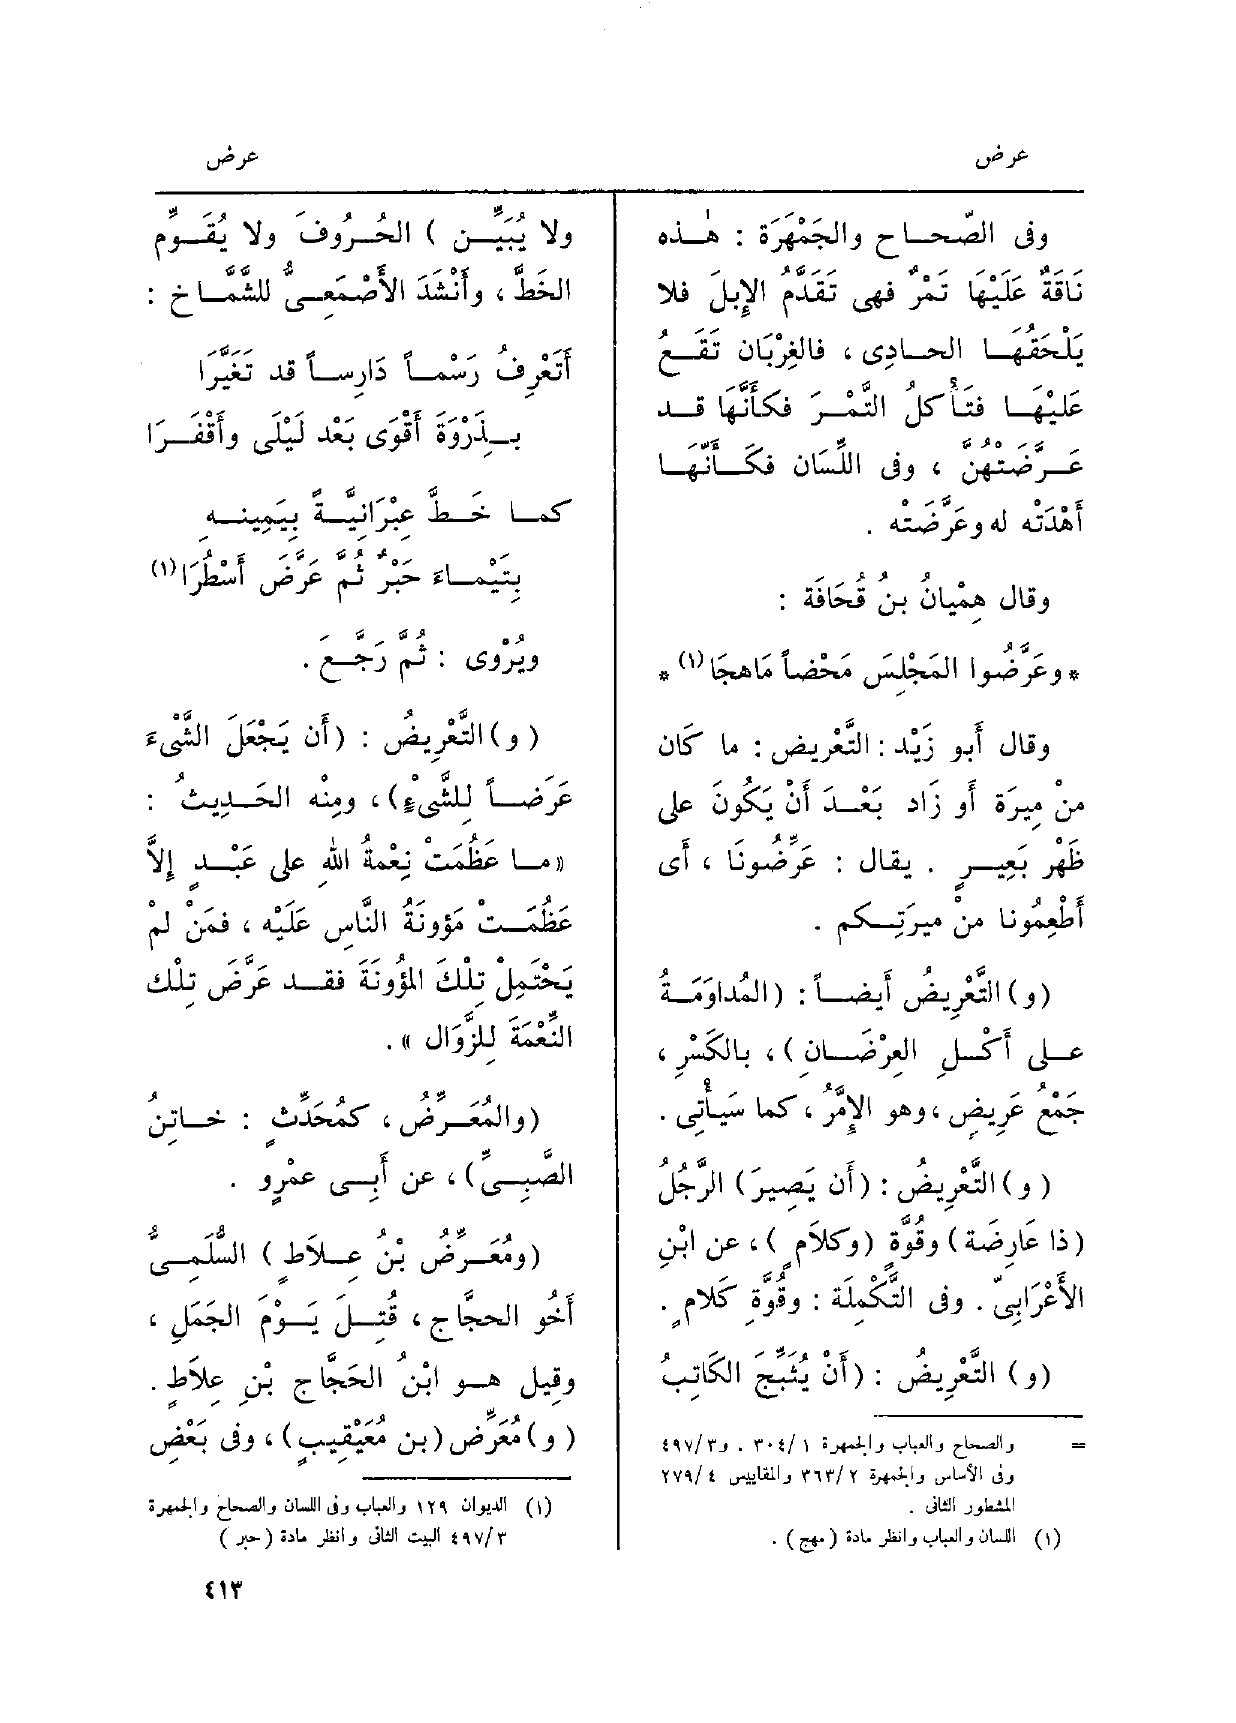 عرض
وفى الصّحاح والجَمْهَرَة : هٰذه
نَاقَةٌ عَلَيْهَا تَمْرٌ فهى تَقَدَّمُ الإِبلَ فلا
يَلْحَقُهَا الحادِى ، فالغِرْبَان تَقَعُ
عَلَيْهَا فتَأْكلُ التَّمْرَ فكأَنَّهَا قد
عَرَّضَتْهُنّ ، وفى اللِّسَان فكَأَنَّهَا
أَهْدَتْه له وعَرَّضَتْه .
وقال هِمْيانُ بنُ قُحَافَة :
* وعَرَّضُوا المَجْلِسَ مَحْضاً مَاهِجَا(١) *
وقال أَبو زَيْد : التَّعْرِيض : ما كان
منْ مِيرَة أَو زَاد بَعْدَ أَنْ يَكُونَ على
ظَهْرِ بَعِيرٍ . يقال : عَرِّضُونَا ، أَى
أَطْعِمُونا منْ مِيرَتِكم .
(و) التَّعْرِيضُ أَيضاً : (المُداوَمَةُ
على أَكْلِ العِرْضَانِ) ، بالكَسْرِ ،
جَمْعُ عَرِيضٍ ، وهو الإِمَّرُ ، كما سَيَأْتِى .
(و) التَّعْرِيضُ : (أَن يَصِيرَ) الرَّجُلُ
(ذا عَارِضَة) وقُوَّةٍ (وكلاَمٍ) ، عن ابْنِ
الأَعْرَابِىّ . وفى التَّكْمِلَة : وقُوَّةِ كَلامٍ .
(و) التَّعْرِيضُ : (أَنْ يُثَبِّجَ الكَاتِبُ
= والصحاح والعباب والجمهرة ١/ ٣٠٤ . و٣/ ٤٩٧
وفى الأساس والجمهرة ٢/ ٣٦٣ والمقاييس ٤/ ٢٧٩
المشطور الثانى .
(١) اللسان والعباب وانظر مادة (مهج) .
عرض
ولا يُبَيِّن ) الحُروفَ ولا يُقَوِّم
الخَطَّ ، وأَنْشَدَ الأَصْمَعِىُّ للشَّمَاخ :
أَتَعْرِفُ رَسْماً دَارِساً قد تَغَيَّرَا
بِذَرْوَة أَقْوَى بَعْد لَيْلَى وأَقْفَرَا
كما خَطَّ عِبْرَانِيَّةً بيَمِينه
بِتَيْمَاءَ حَبْرٌ ثُمَّ عَرَّضَ أَسْطُرَا(١)
ويُرْوَى : ثُمَّ رَجَّعَ .
(و) التَّعْرِيضُ : (أَن يَجْعَلَ الشَّىْءَ
عَرَضاً لِلشَّىْءِ) ، ومِنْه الحَدِيثُ :
«ما عَظُمَتْ نِعْمَةُ الله على عَبْدٍ إِلاَّ
عَظُمَتْ مَؤُونَةُ النَّاسِ عَلَيْه ، فمَنْ لمْ
يَحْتَمِلْ تلْكَ المَؤُونَةَ فقد عَرَّض تِلْك
النِّعْمَةَ لِلزَّوَال » .
(والمُعَرِّضُ ، كمُحَدِّثٍ : خاتِنُ
الصَّبِىِّ) ، عن أَبِى عمْرٍو .
(ومُعَرِّضُ بْنُ عِلاَطٍ ) السُّلَمِىُّ
أَخُو الحجَّاج ، قُتِلَ يَوْمَ الجَمَلِ ،
وقِيل هو ابْنُ الحَجَّاج بْنِ عِلاَطٍ .
(و) مُعَرِّض (بن مُعَيْقِيبٍ) ، وفى بَعْض
(١) الديوان ١٢٩ والعباب وفى اللسان والصحاح والجمهرة
٣/ ٤٩٧ البيت الثانى وانظر مادة (حبر )
٤١٣